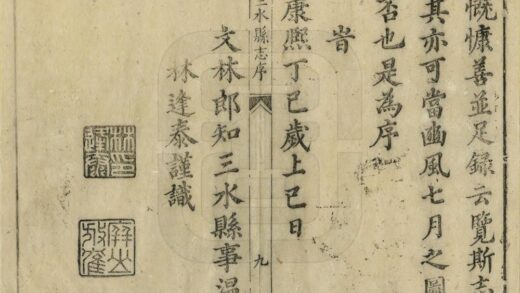 慨慷善並足錄云覽斯志
其亦可當豳風七月之圖
否也是為序
旹
康熙丁巳歲上巳日
三水縣志序
九
文林郎知三水縣事溫
林逢泰謹識
林印逢泰